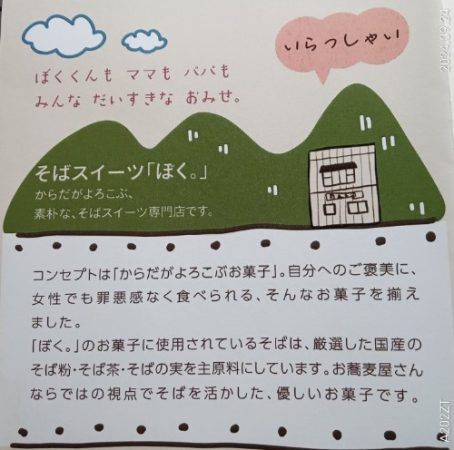 いらっしゃい
ぼくくんも ママも パパも
みんな だいすきな おみせ。
そばスイーツ「ぼく。」
からだがよろこぶ、
素朴な、そばスイーツ専門店です。
コンセプトは「からだがよろこぶお菓子」。自分へのご褒美に、
女性でも罪悪感なく食べられる、そんなお菓子を揃え
ました。
「ぼく。」のお菓子に使用されているそばは、厳選した国産の
そば粉・そば茶・そばの実を主原料にしています。お蕎麦屋さん
ならではの視点でそばを活かした、優しいお菓子です。
A202ZT